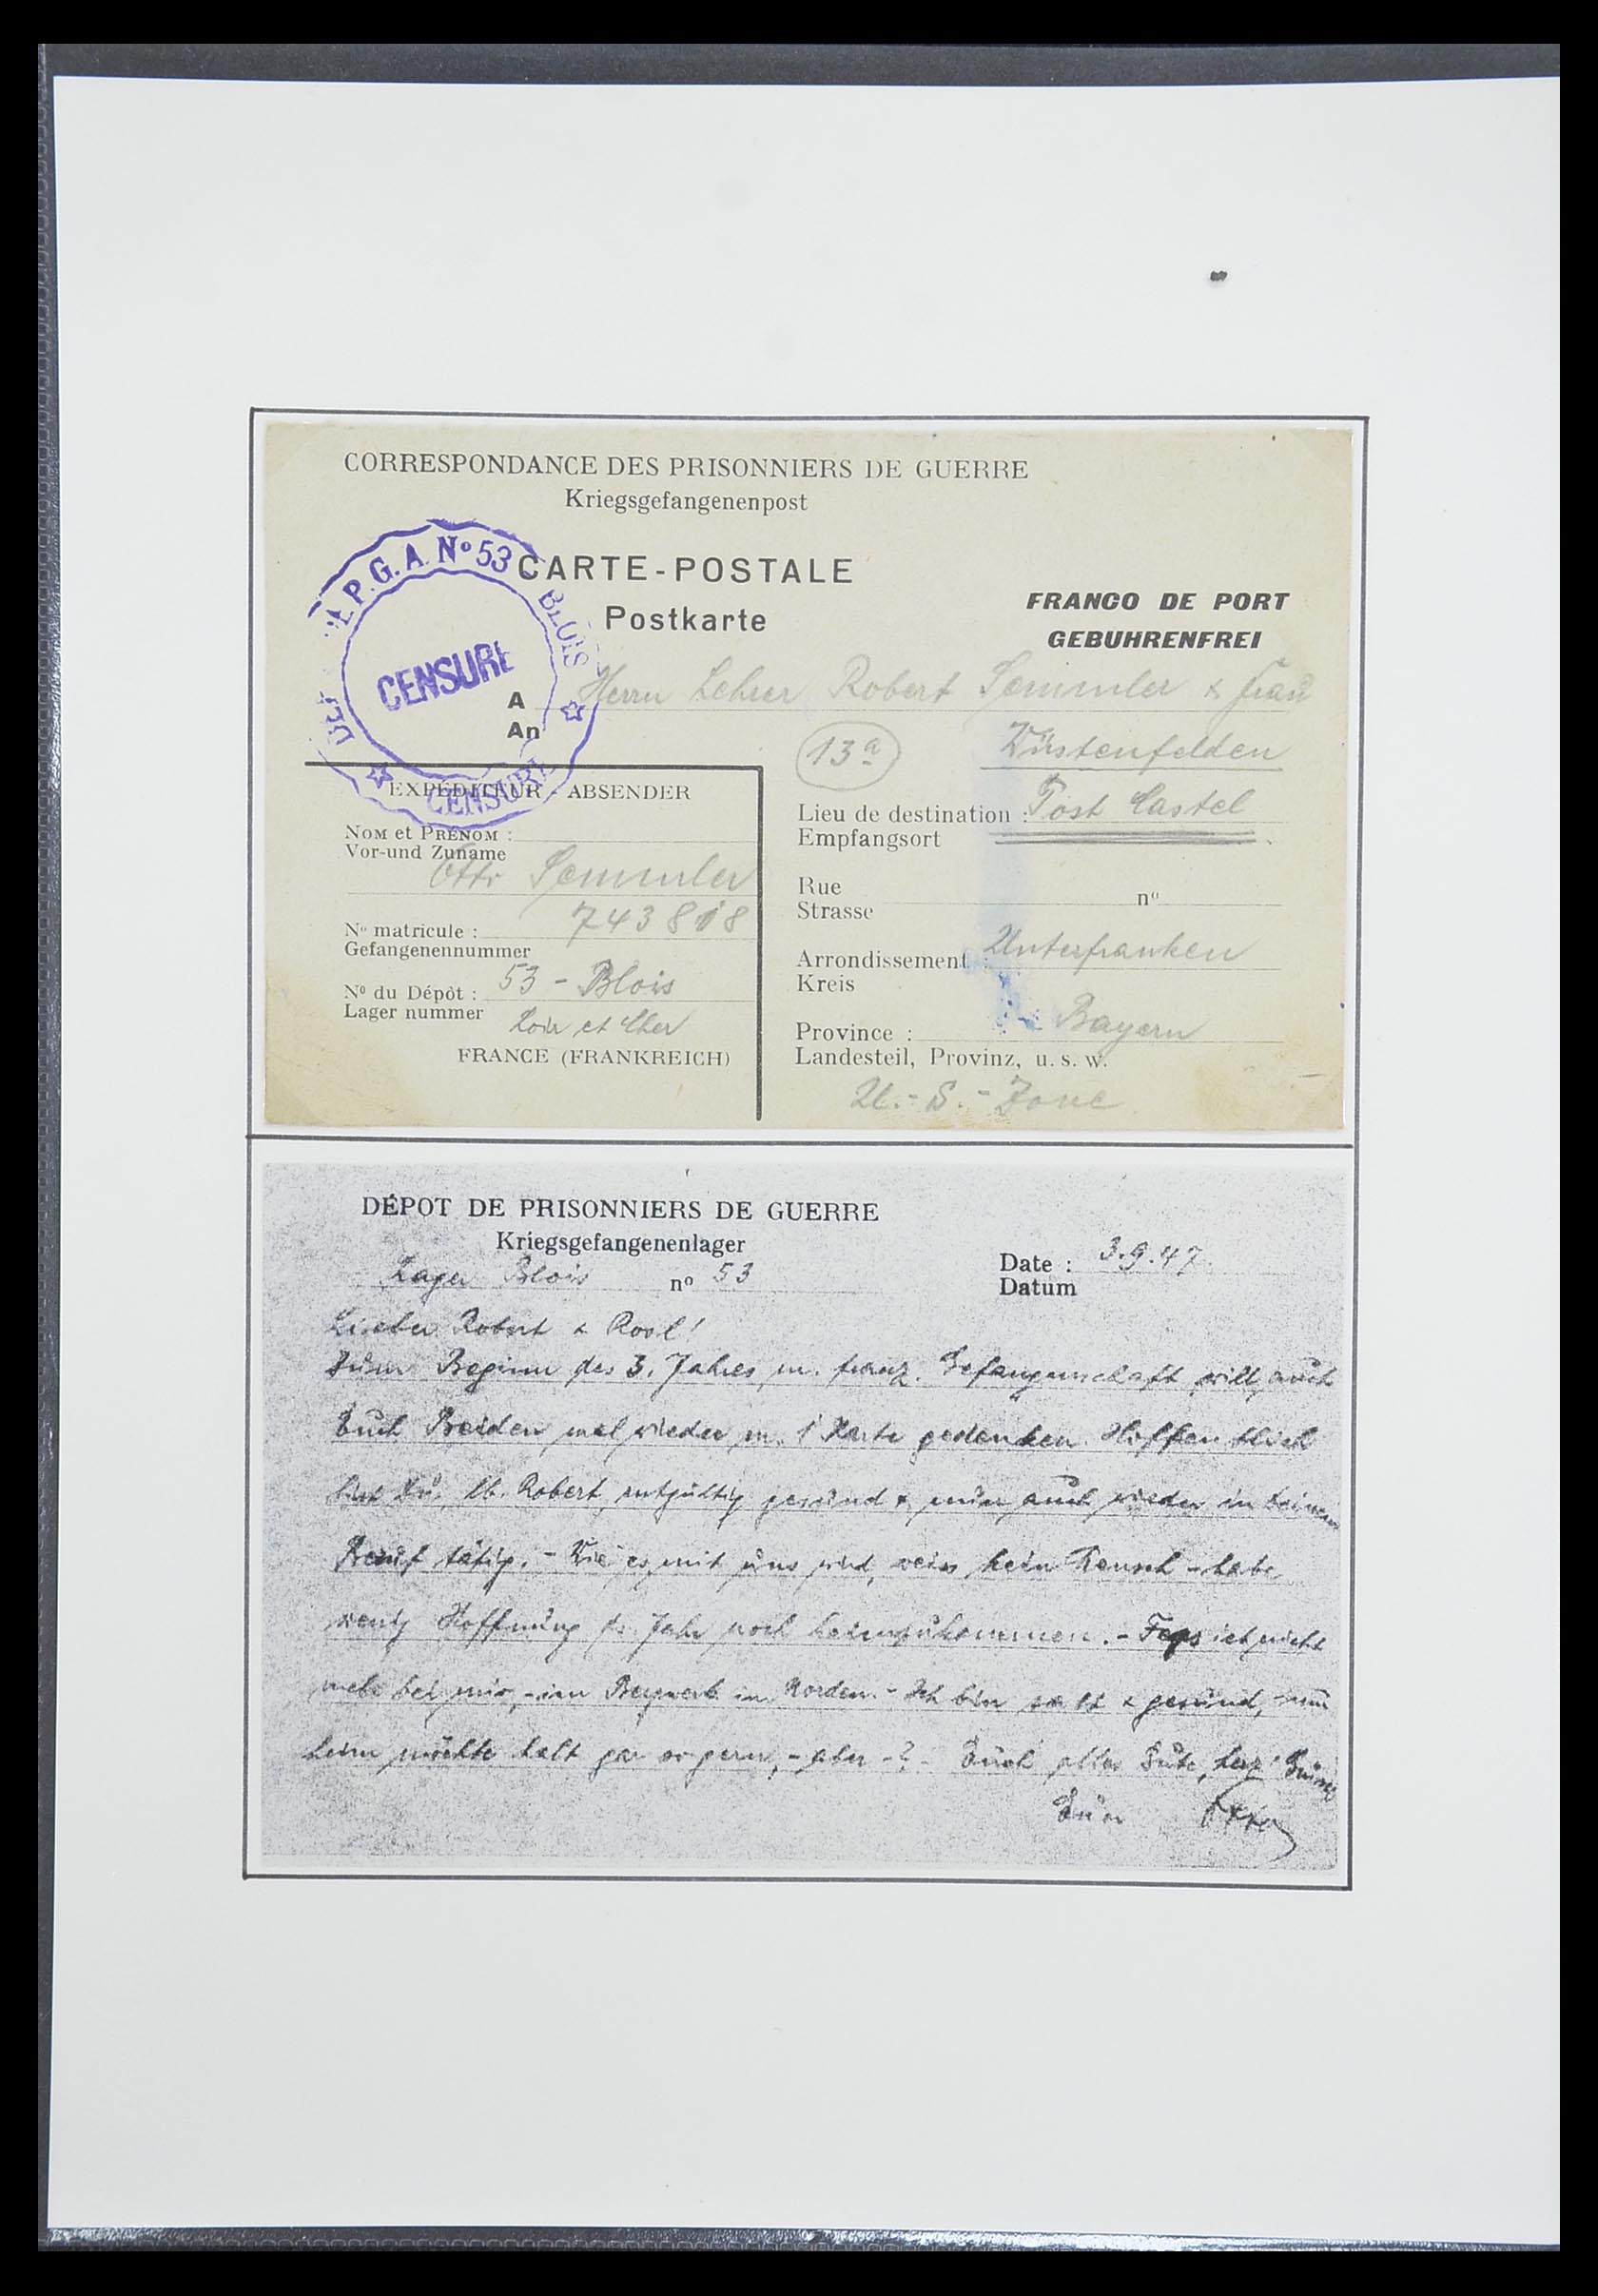 CORRESPONDANCE DES PRISONNIERS DE GUERRE
Kriegsgefangenenpost
CARTE-POSTALE
Postkarte
FRANCO DE PORT
GEBUHRENFREI
P.G.A. No 53 BLOIS
CENSURE
CENSURE
A Herrn Lehrer Robert Semmler & Frau
An
13a Wüstenfelden
Lieu de destination : Post Castel
Empfangsort
Rue
Strasse no
Arrondissement : Unterfranken
Kreis
Province : Bayern
Landesteil, Provinz, u. s. w.
U.-S.-Zone
EXPÉDITEUR - ABSENDER
Nom et Prénom :
Vor-und Zuname
Otto Semmler
No matricule : 743818
Gefangenennummer
No du Dépôt : 53 - Blois
Lager nummer Loir et Cher
FRANCE (FRANKREICH)
DÉPOT DE PRISONNIERS DE GUERRE
Kriegsgefangenenlager
Lager Blois no 53
Date : 3.9.47
Datum
Lieber Robert & Rosl!
Zum Beginn des 3. Jahres in franz. Gefangenschaft will auch
Euch Beiden mal wieder m. 1 Karte gedenken. Hoffentlich
bist Du, lb. Robert, entgültig gesund & nun auch wieder in Deinem
Beruf tätig. - Wie es mit uns wird, weiss kein Mensch - habe
wenig Hoffnung ds. Jahr noch heimzukommen. - ist nicht
mehr bei mir, - im Bergwerk im Norden. - Ich bin & gesund, nur
heim möchte halt gar so gern, - aber - ? - Euch alles Gute, herzl. Grüsse
Euer Otto